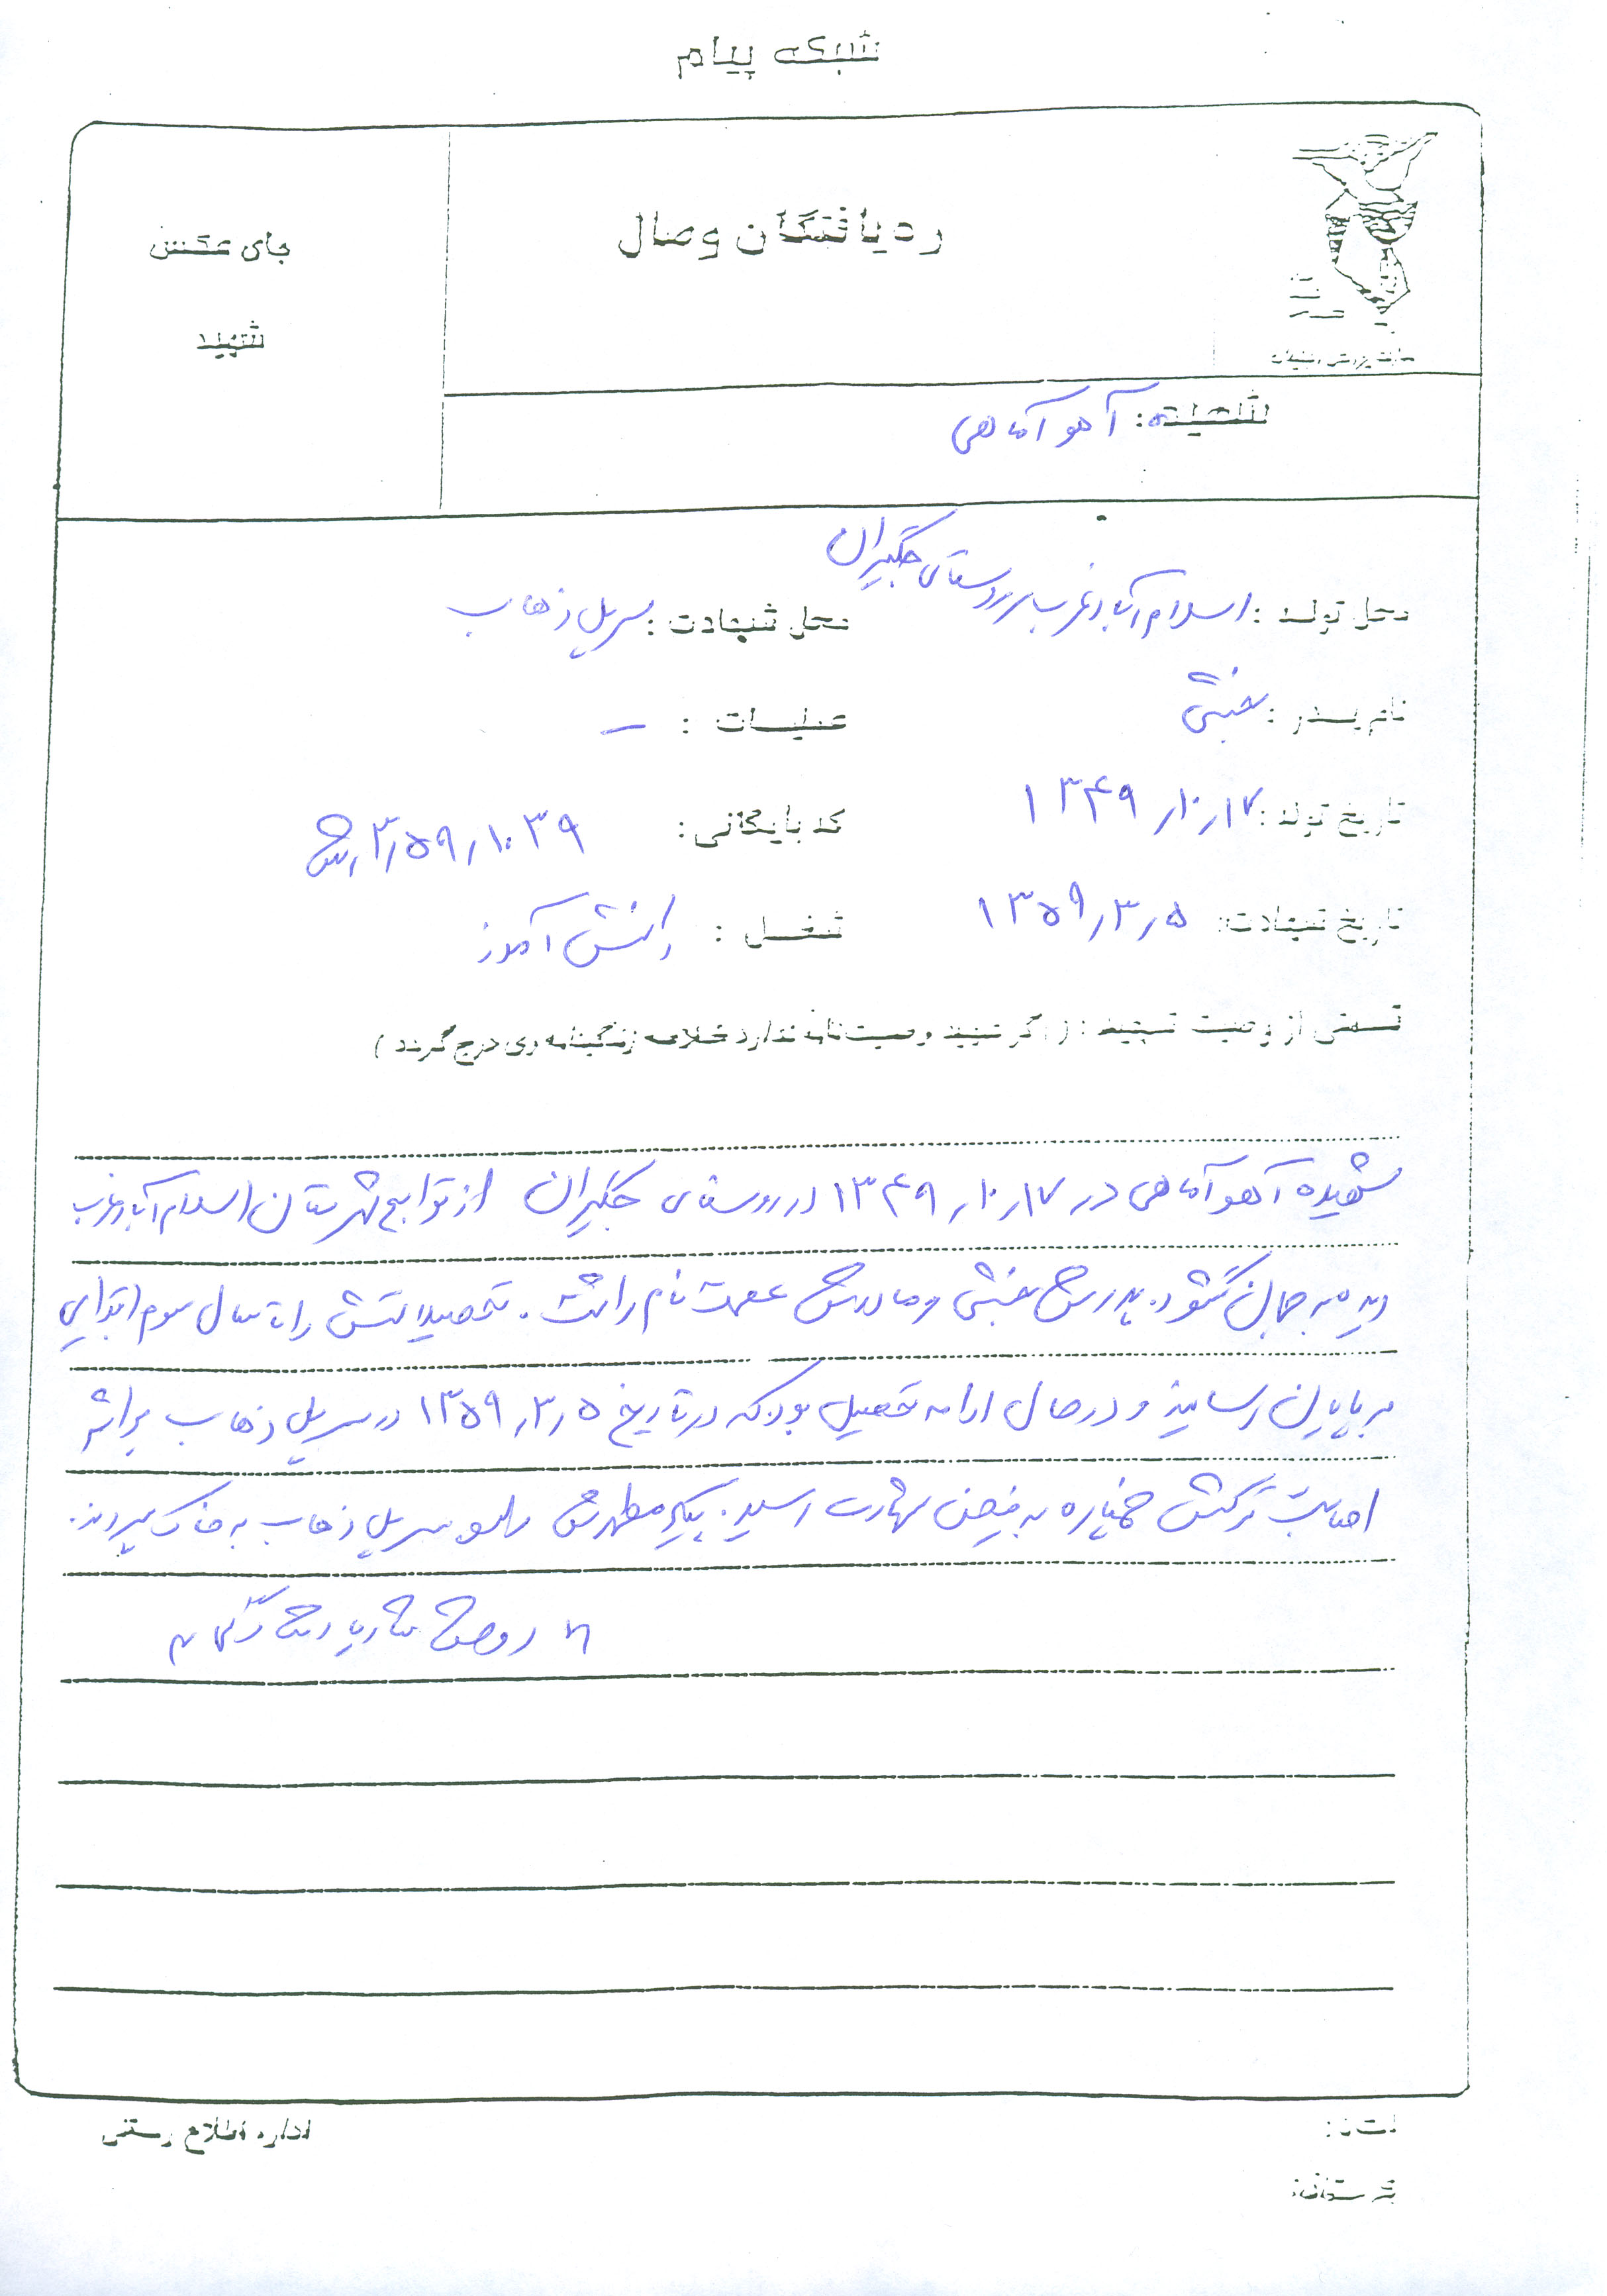 شبکه پیام
ره یافتگان وصال
جای عکس
شهید
شهیده: آهو آماهی
محل تولد: اسلام آباد غرب روستای جگیران
محل شهادت: سرپل ذهاب
نام پدر: عبشی
عملیات: –
تاریخ تولد: ۱۳۴۹٫۱۰٫۱۷
کد بایگانی: ۳٫۵۹٫۱۰۳۹
تاریخ شهادت: ۱۳۵۹٫۳٫۵
شغل: دانش آموز
قسمتی از وصیت شهید: (اگر شهید وصیت نامه ندارد خلاصه زندگینامه وی درج گردد)
شهیده آهو آماهی در ۱۳۴۹٫۱۰٫۱۷ در روستای جگیران از توابع شهرستان اسلام آباد غرب
دیده به جهان گشود. پدرش عبشی و مادرش عصمت نام داشت. تحصیلاتش را تا سال سوم ابتدایی
به پایان رسانید و در حال ادامه تحصیل بود که در تاریخ ۱۳۵۹٫۳٫۵ در سرپل ذهاب بر اثر
اصابت ترکش خمپاره به فیض شهادت رسید. پیکر مطهرش سرپل ذهاب به خاک سپردند.
اداره اطلاع رسانی